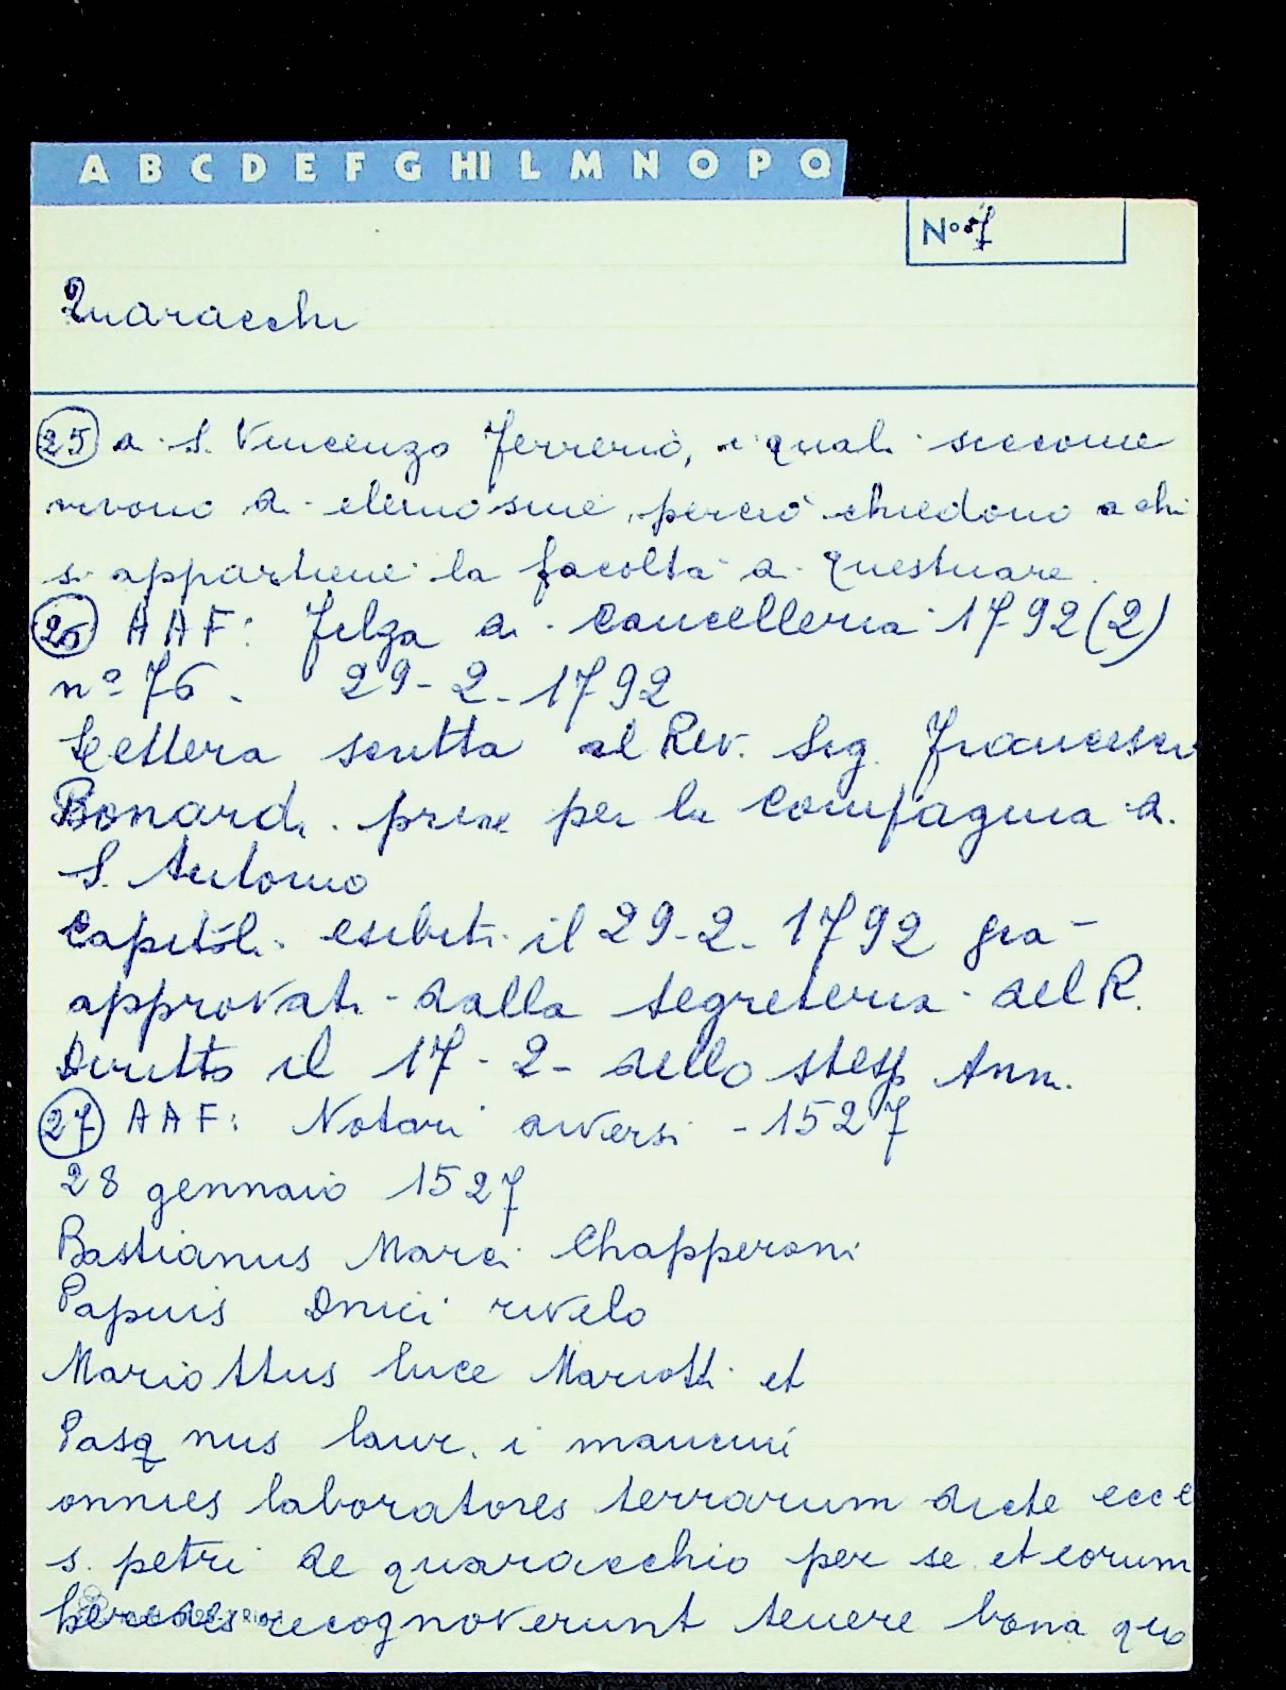 A B C D E F G HI L M N O P Q
N° 7
Quaracchi
25 a S. Vincenzo Ferrerio, i quali siccome
vivono di elemosine, perciò chiedono a chi
si appartiene la facoltà di questuare.
26 AAF: Filza di Cancelleria 1792 (2)
n° 76. 29-2-1792
Lettera scritta al Rev. Sig. Francesco
Bonardi priore per la Compagnia di
S. Antonio
Capitoli esibiti il 29-2-1792 già
approvati dalla segreteria del R.
Diritto il 17-2- dello stesso Ann.
27 AAF: Notari diversi - 1527
28 gennaio 1527
Bastianus Marci Chapperoni
Papuis Dnici rivelo
Mariottus luce Mariotti et
Pasq nus laur. i mancini
omnies laboratores terrarum dicte ecce
s. petri de quaracchio per se et eorum
heredes recognoverunt tenere bona quo